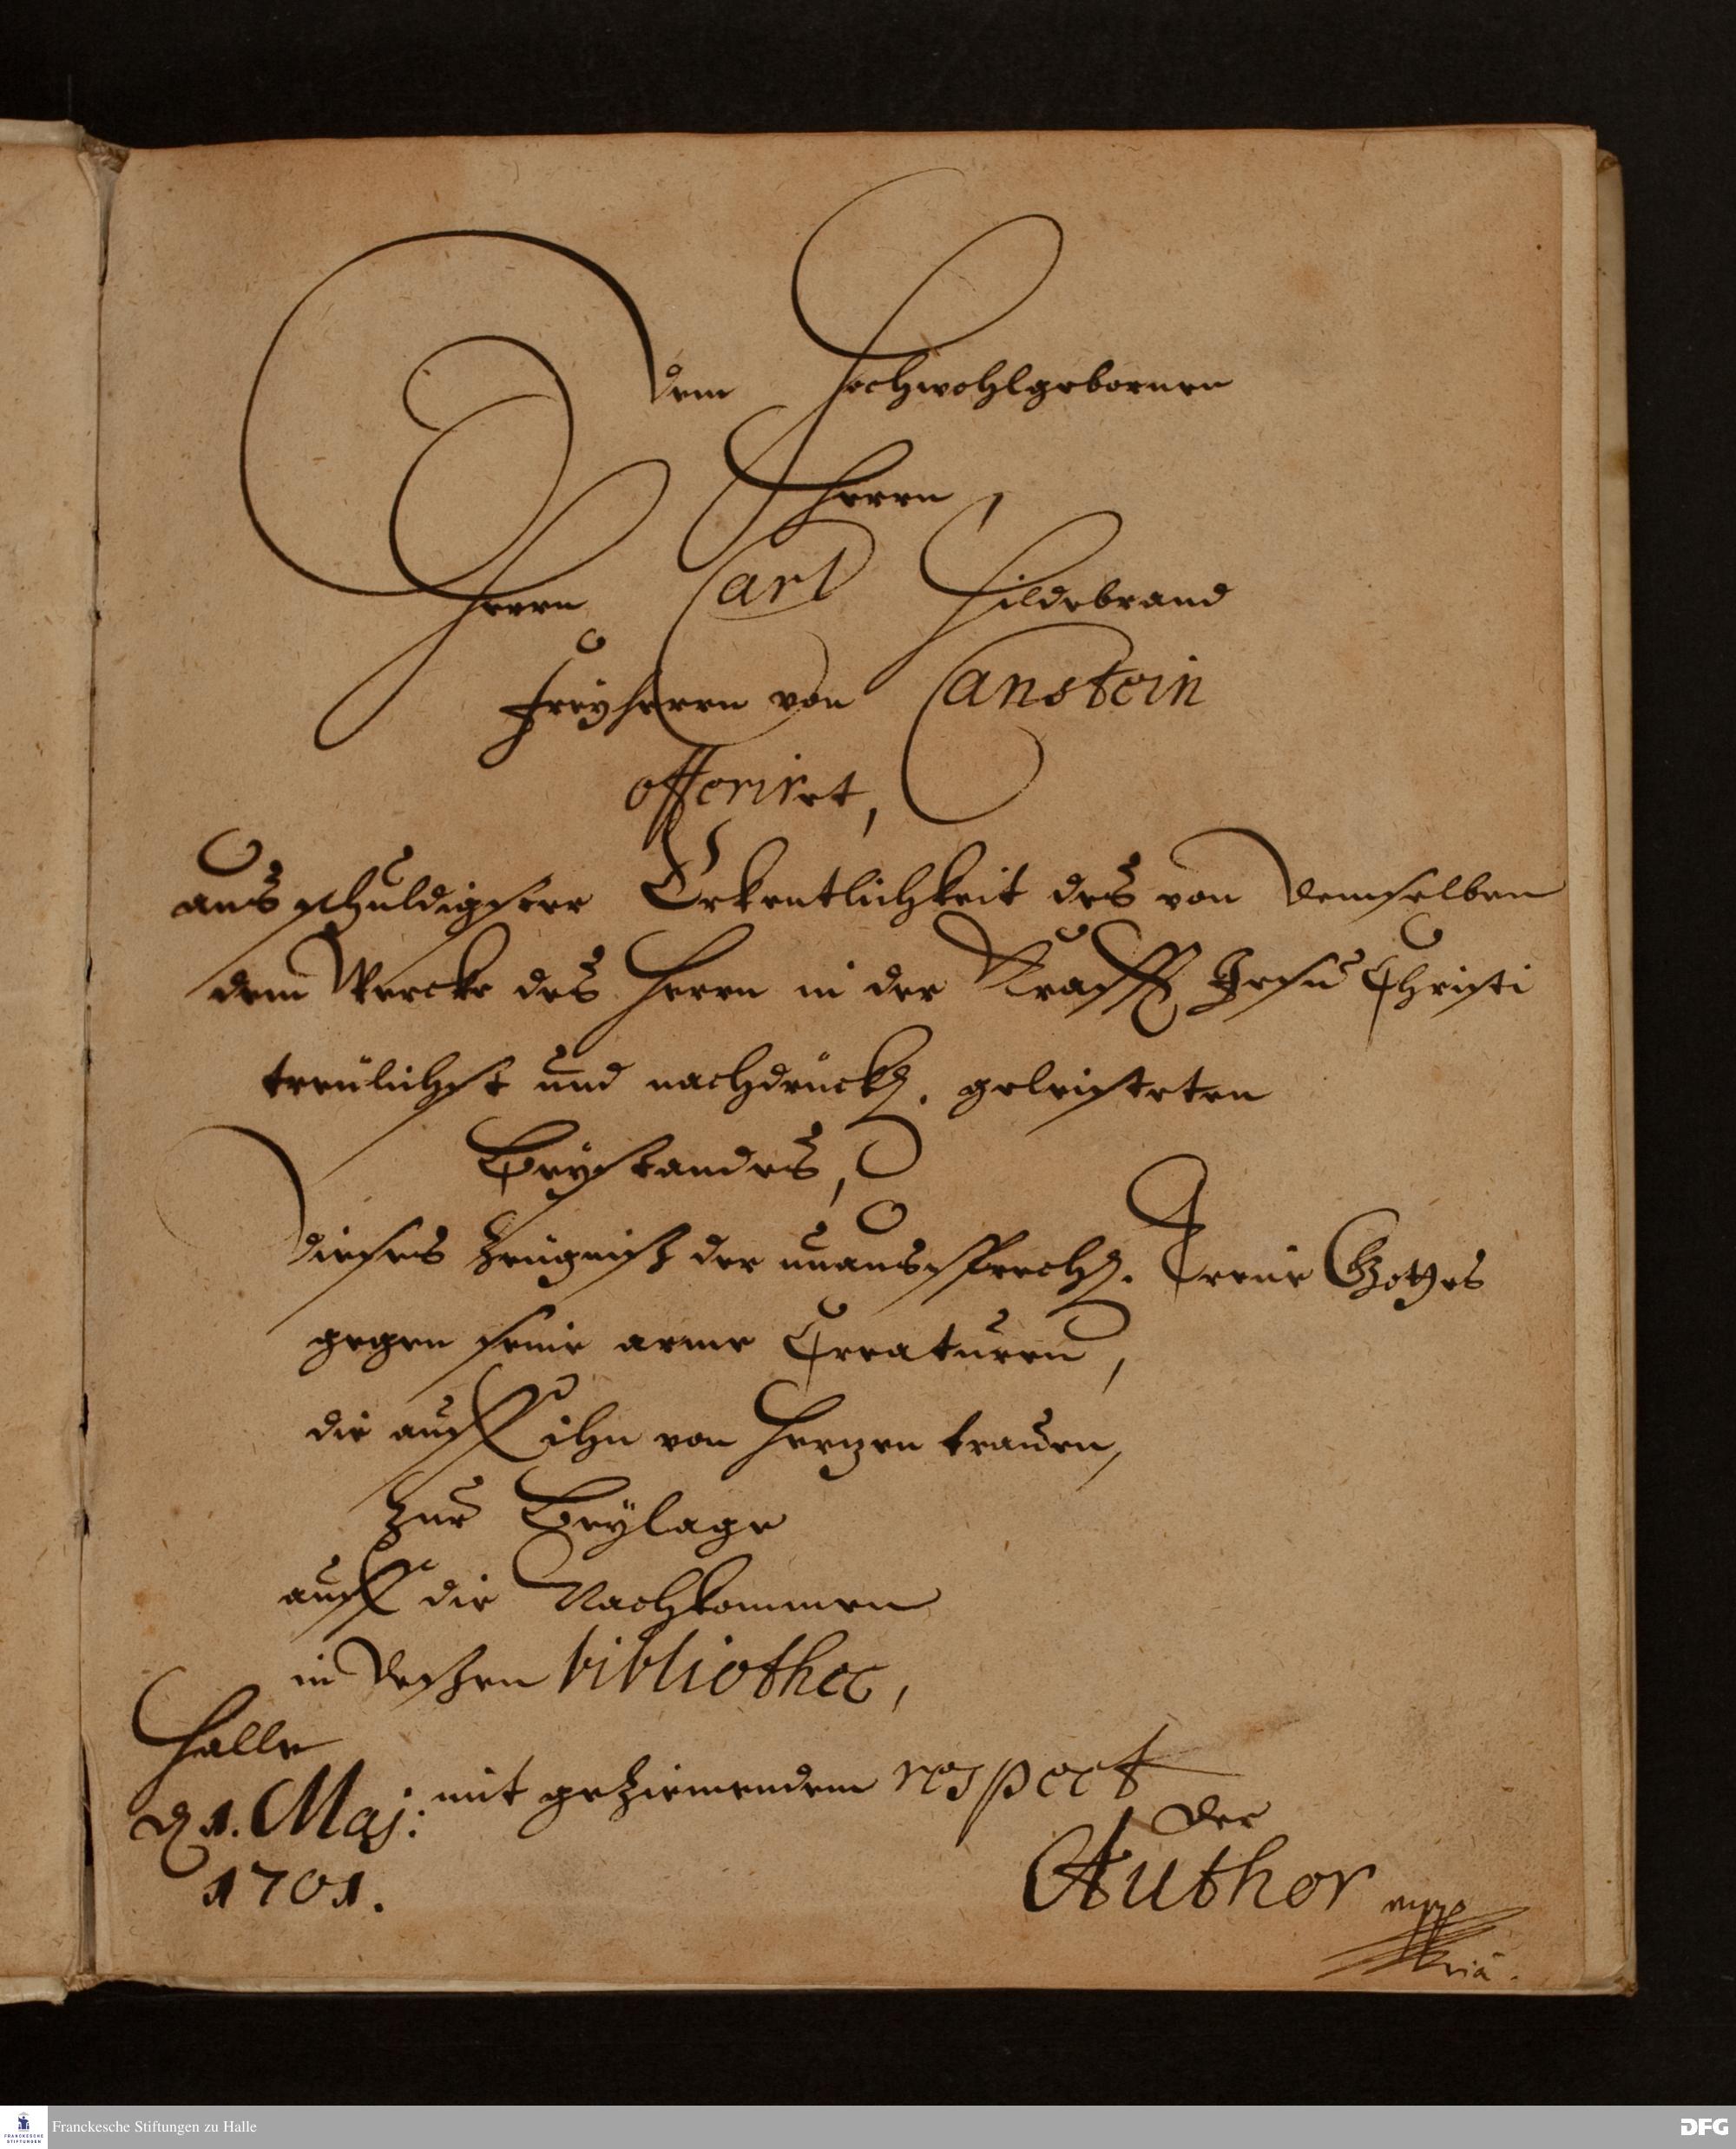 Dem Hochwohlgebornen
Herrn,
Herrn Carl Hildebrand
Freyherrn von Canstein
offeriret,
aus schuldigster Erkentlichkeit des von Demselben
dem Wercke des Herrn in der Krafft Jesu Christi
treulichst und nachdrückl. geleisteten
Beystandes,
Dieses Zeugniß der unaussprechl. Treue Gottes
gegen seine arme Creaturen,
die auff ihn von Hertzen trauen,
Zur Beylage
auff die Nachkommen
in Deßen bibliothec,
Halle
mit geziemendem respect
d. 1. Maj:
der
1701.
Author mppria.
Franckesche Stiftungen zu Halle
FRANCKESCHE
STIFTUNGEN
DFG